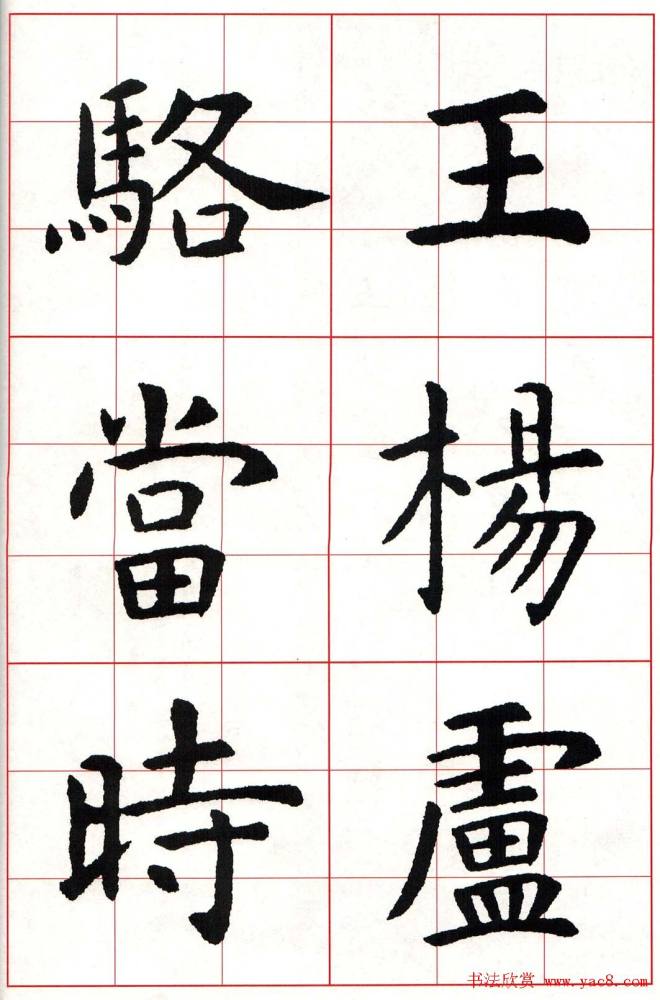 王楊盧
駱當時
书法欣赏 www.yac8.com